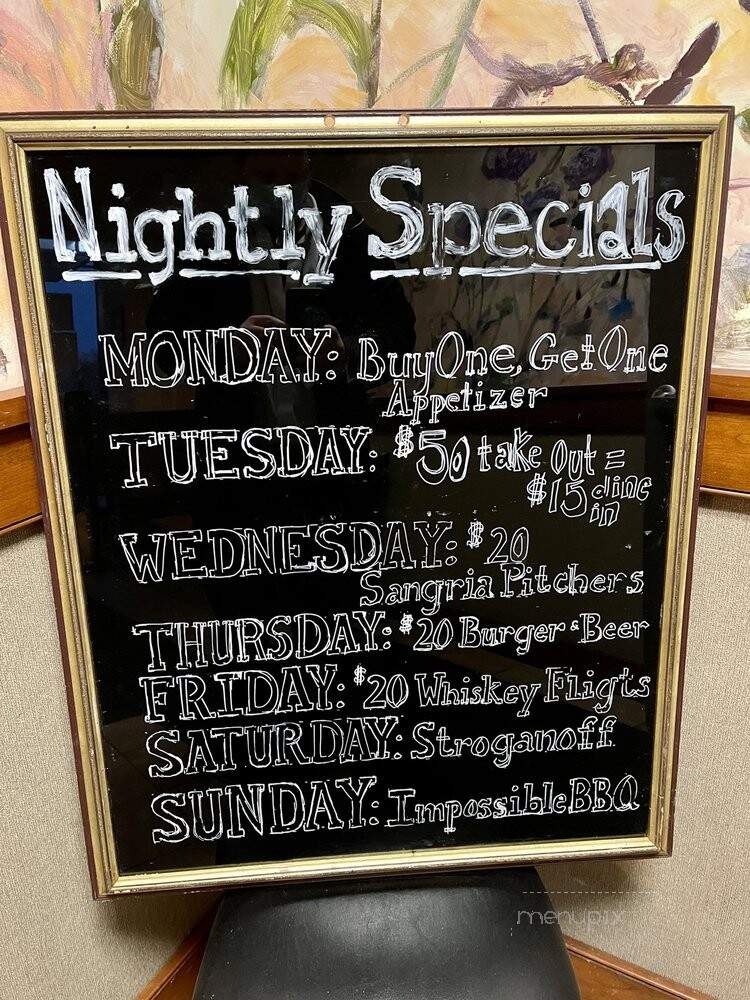 Nightly Specials
MONDAY: Buy One, Get One
Appetizer
TUESDAY: $50 take out =
$15 dine
in
WEDNESDAY: $20
Sangria Pitchers
THURSDAY: $20 Burger & Beer
FRIDAY: $20 Whiskey Fligts
SATURDAY: Stroganoff
SUNDAY: Impossible BBQ
menupix